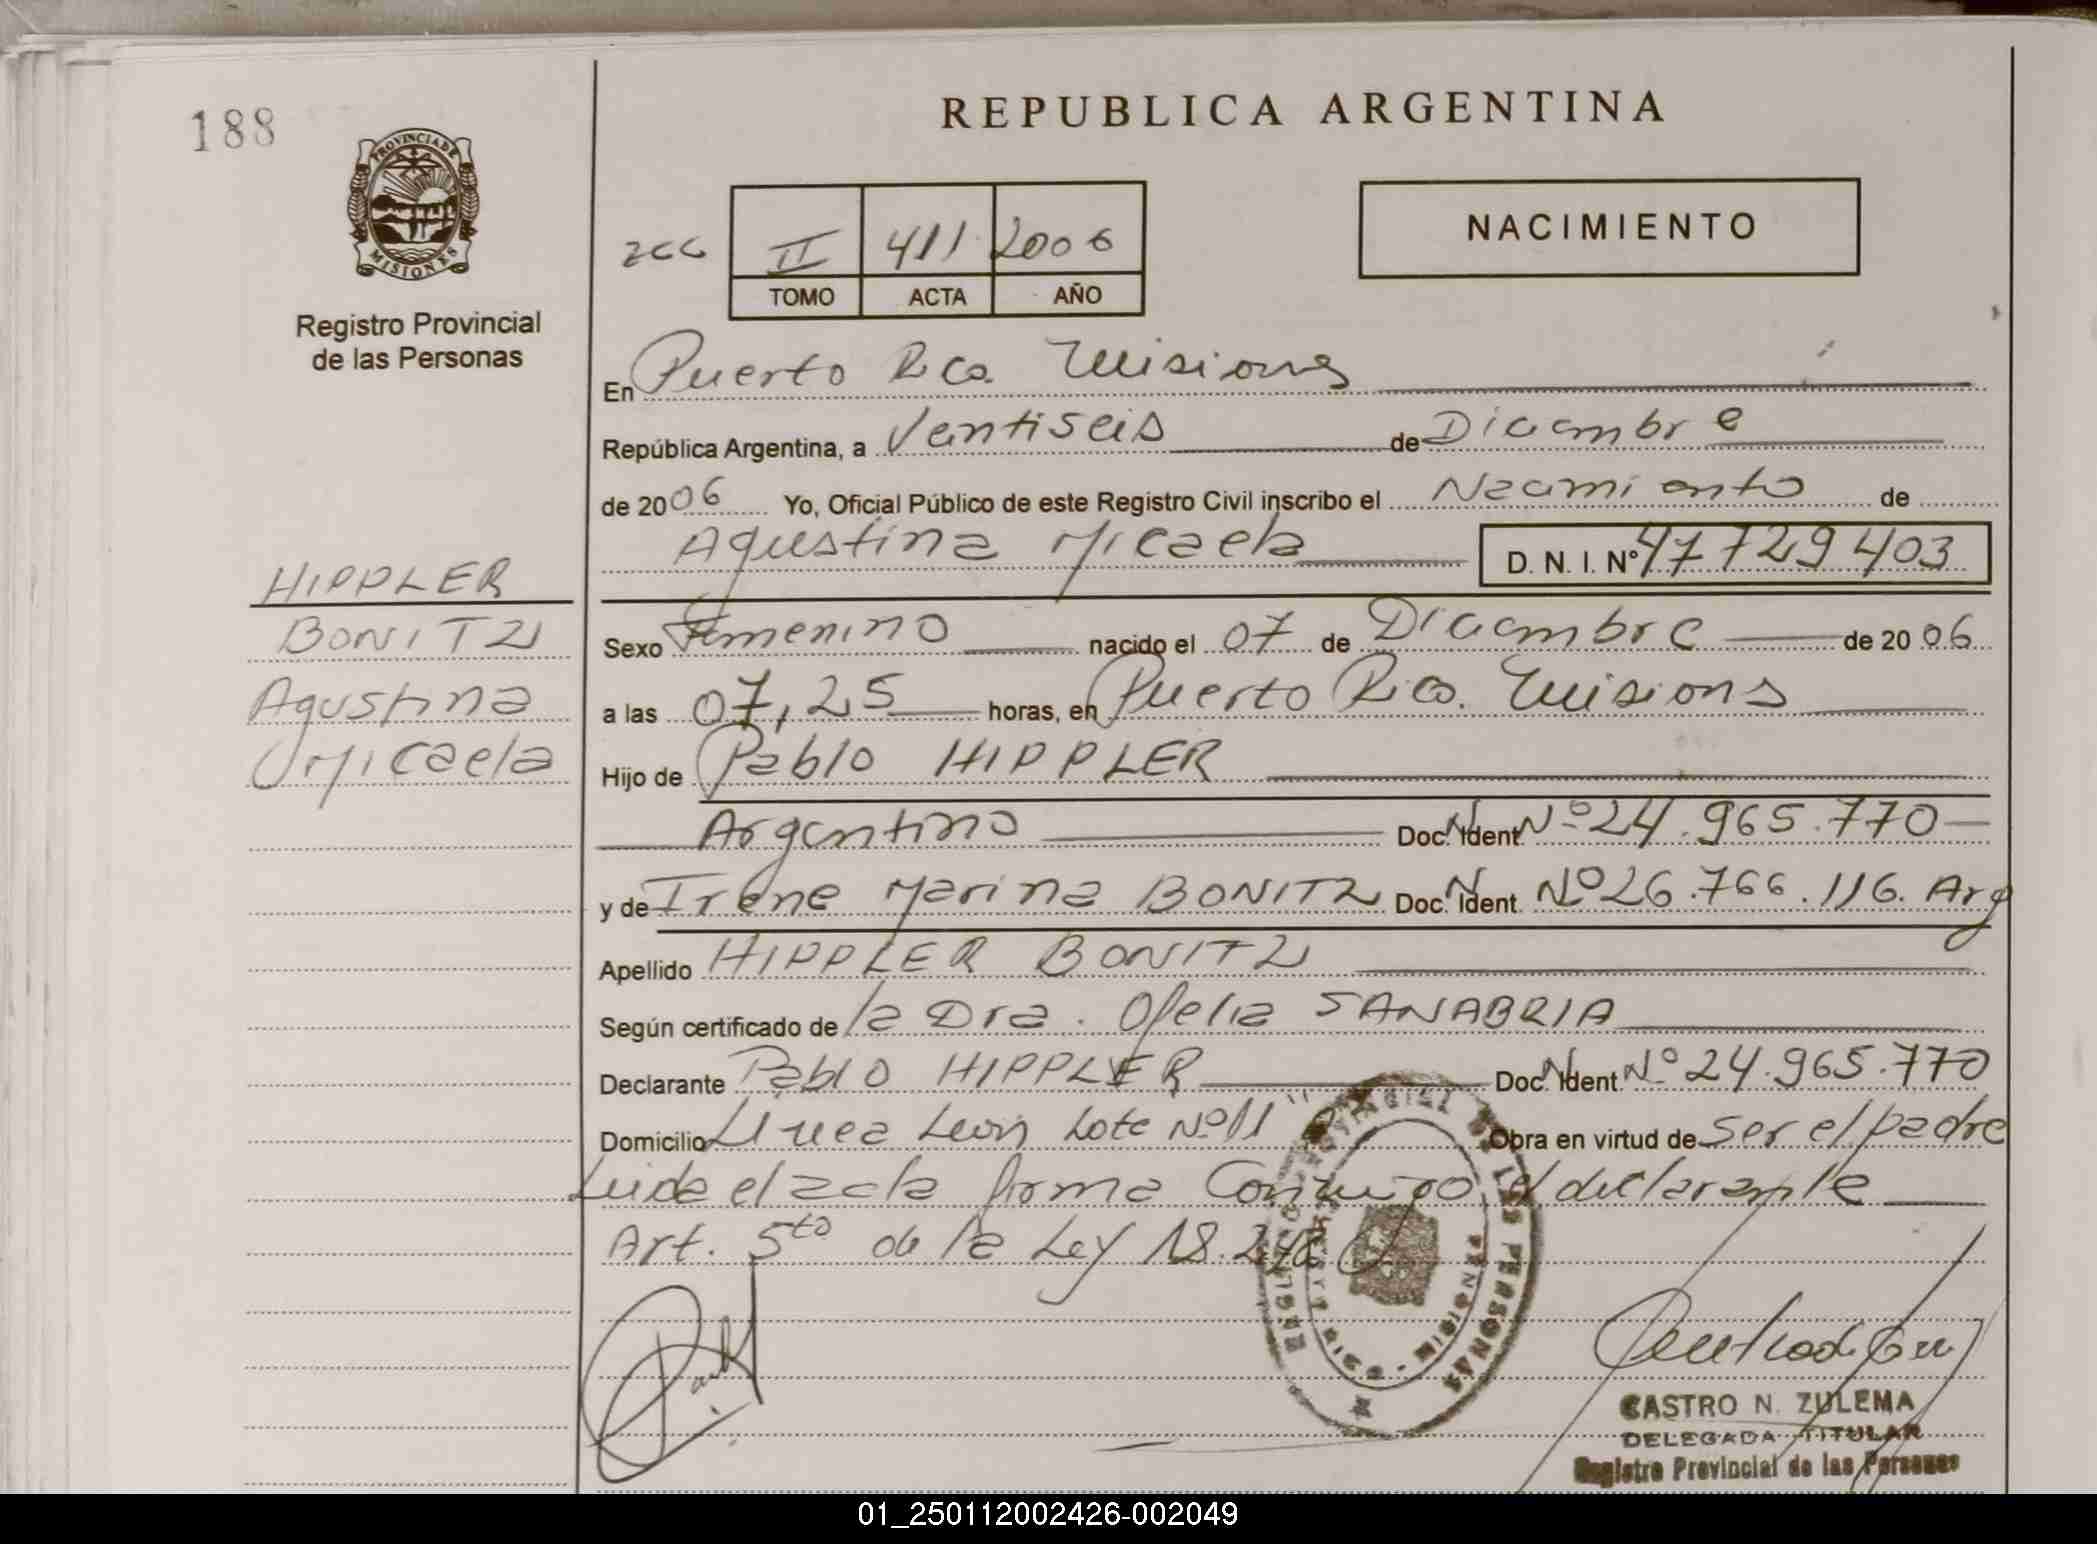 188
REPUBLICA ARGENTINA
PROVINCIA DE
MISIONES
Registro Provincial
de las Personas
NACIMIENTO
II 411 2006
TOMO ACTA AÑO
En Puerto Rico. Misiones
República Argentina, a Ventiseis de Diciembre
de 2006 Yo, Oficial Público de este Registro Civil inscribo el Nacimiento de
Agustina Micaela D. N. I. Nº 47729403
HIPPLER
BONITZ
Agustina
Micaela
Sexo Femenino nacido el 07 de Diciembre de 2006
a las 07,25 horas, en Puerto Rico. Misiones
Hijo de Pablo HIPPLER
Argentino Doc. Ident. Nº 24.965.770
y de Irene Marina BONITZ Doc. Ident. Nº 26.766.116. Arg
Apellido HIPPLER BONITZ
Según certificado de la Dra. Ofelia SANABRIA
Declarante Pablo HIPPLER Doc. Ident Nº 24.965.770
Domicilio Línea León Lote Nº 11 Obra en virtud de ser el padre
Leida el acta firma Conmigo el declarante
Art. 5to de la Ley 18.248
CASTRO N. ZULEMA
DELEGADA TITULAR
Registro Provincial de las Personas
01_250112002426-002049